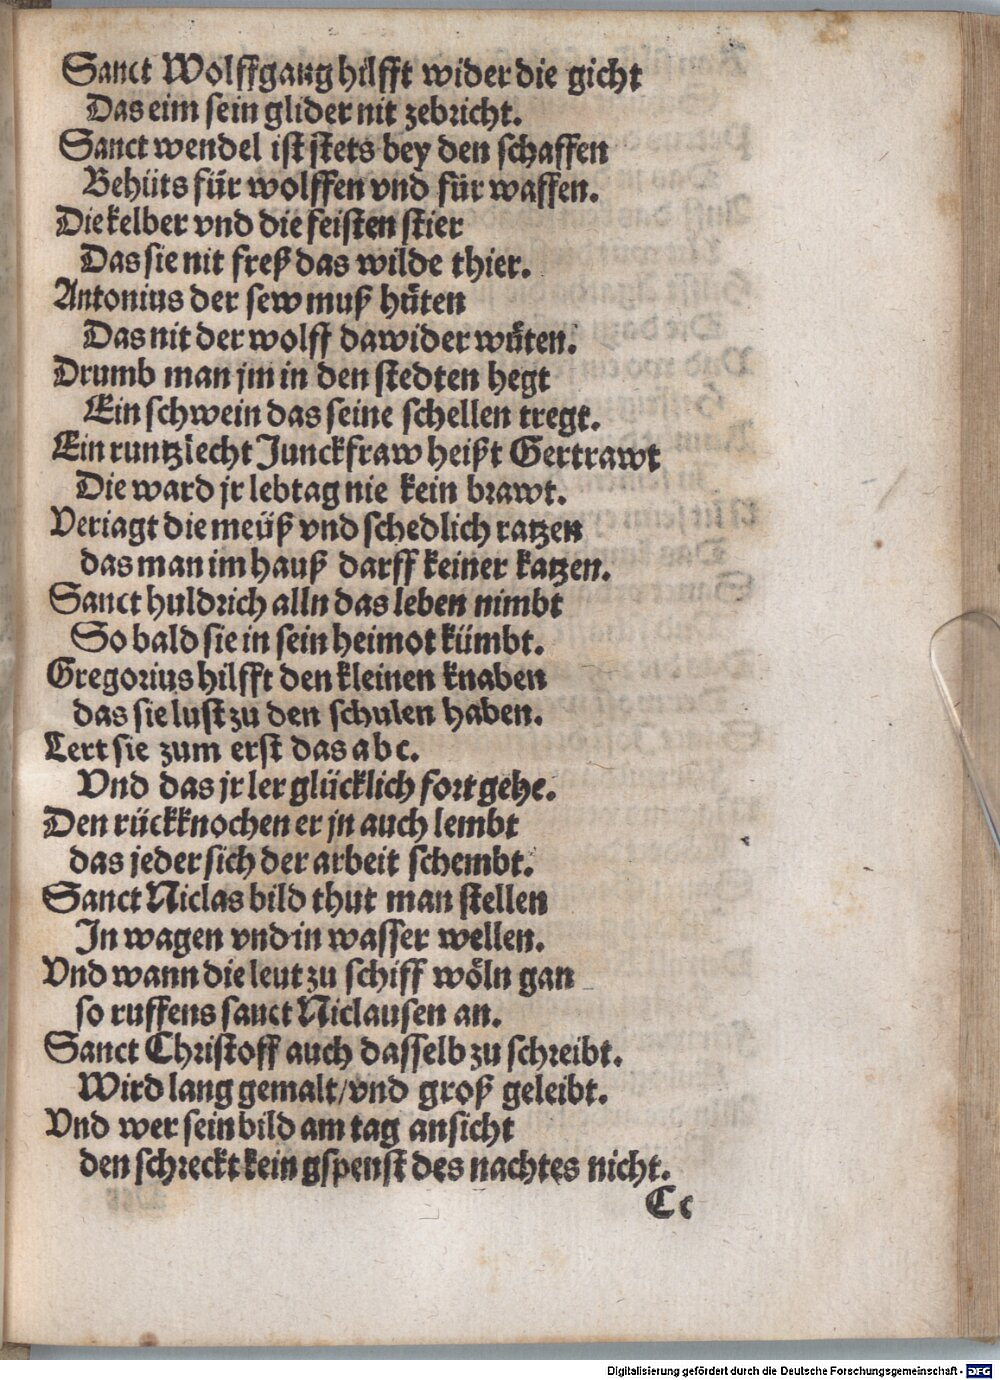 Sanct Wolffgang hilfft wider die gicht
Das eim sein glider nit zebricht.
Sanct wendel ist stets bey den schaffen
Behüts für wolffen vnd für waffen.
Die kelber vnd die feisten stier
Das sie nit freß das wilde thier.
Antonius der sew muß hůten
Das nit der wolff dawider wůten.
Drumb man jm in den stedten hegt
Ein schwein das seine schellen tregt.
Ein runtzlecht Junckfraw heißt Gertrawt
Die ward jr lebtag nie kein brawt.
Veriagt die meüß vnd schedlich ratzen
das man im hauß darff keiner katzen.
Sanct huldrich alln das leben nimbt
So bald sie in sein heimot kümbt.
Gregorius hilfft den kleinen knaben
das sie lust zu den schulen haben.
Lert sie zum erst das abc.
Vnd das jr ler glücklich fort gehe.
Den rückknochen er jn auch lembt
das jeder sich der arbeit schembt.
Sanct Niclas bild thut man stellen
In wagen vnd in wasser wellen.
Vnd wann die leut zu schiff wöln gan
so ruffens sanct Niclausen an.
Sanct Christoff auch dasselb zu schreibt.
Wird lang gemalt/vnd groß geleibt.
Vnd wer sein bild am tag ansicht
den schreckt kein gspenst des nachtes nicht.
Cc
Digitalisierung gefördert durch die Deutsche Forschungsgemeinschaft - DFG